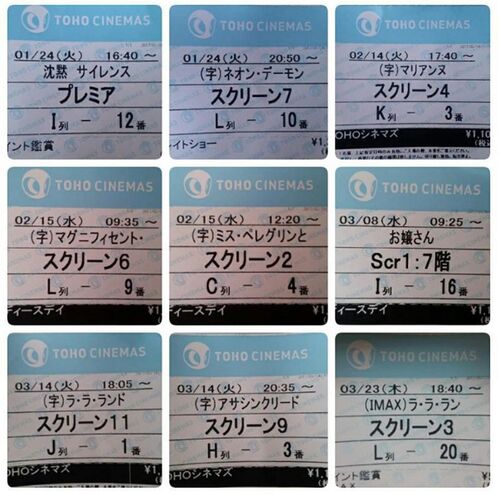 TOHO CINEMAS
01/24(火) 16:40 ～
沈黙 サイレンス
プレミア
I列 － 12番
イント鑑賞
TOHO CINEMAS
01/24(火) 20:50 ～
(字)ネオン・デーモン
スクリーン7
L列 － 10番
イトショー ¥1
TOHO CINEMAS
02/14(火) 17:40 ～
(字)マリアンヌ
スクリーン4
K列 － 3番
OHOシネマズ ¥1,10
TOHO CINEMAS
02/15(水) 09:35 ～
(字)マグニフィセント・
スクリーン6
L列 － 9番
ディースデイ ¥1
TOHO CINEMAS
02/15(水) 12:20 ～
(字)ミス・ペレグリンと
スクリーン2
C列 － 4番
ディースデイ ¥1
TOHO CINEMAS
03/08(水) 09:25 ～
お嬢さん
Scr1:7階
I列 － 16番
ディースデイ ¥1
TOHO CINEMAS
03/14(火) 18:05 ～
(字)ラ・ラ・ランド
スクリーン11
J列 － 1番
OHOシネマズ ¥1
TOHO CINEMAS
03/14(火) 20:35 ～
(字)アサシンクリード
スクリーン9
H列 － 3番
OHOシネマズ ¥1
TOHO CINEMAS
03/23(木) 18:40 ～
(IMAX)ラ・ラ・ラン
スクリーン3
L列 － 20番
イント鑑賞